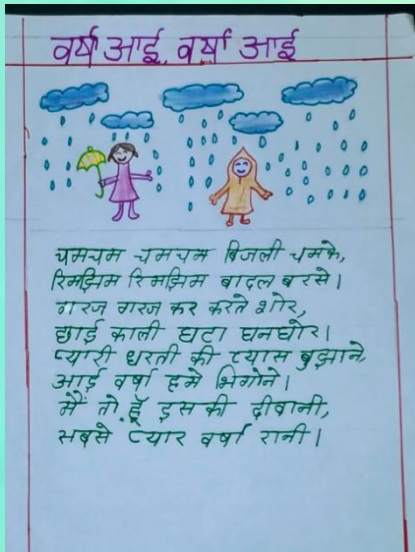 वर्षा आई, वर्षा आई
चमचम चमचम बिजली चमके,
रिमझिम रिमझिम बादल बरसे।
गरज गरज कर करते शोर,
छाई काली घटा घनघोर।
प्यारी धरती की प्यास बुझाने,
आई वर्षा हमे भिगोने।
मैं तो हूँ इसकी दीवानी,
सबसे प्यार वर्षा रानी।